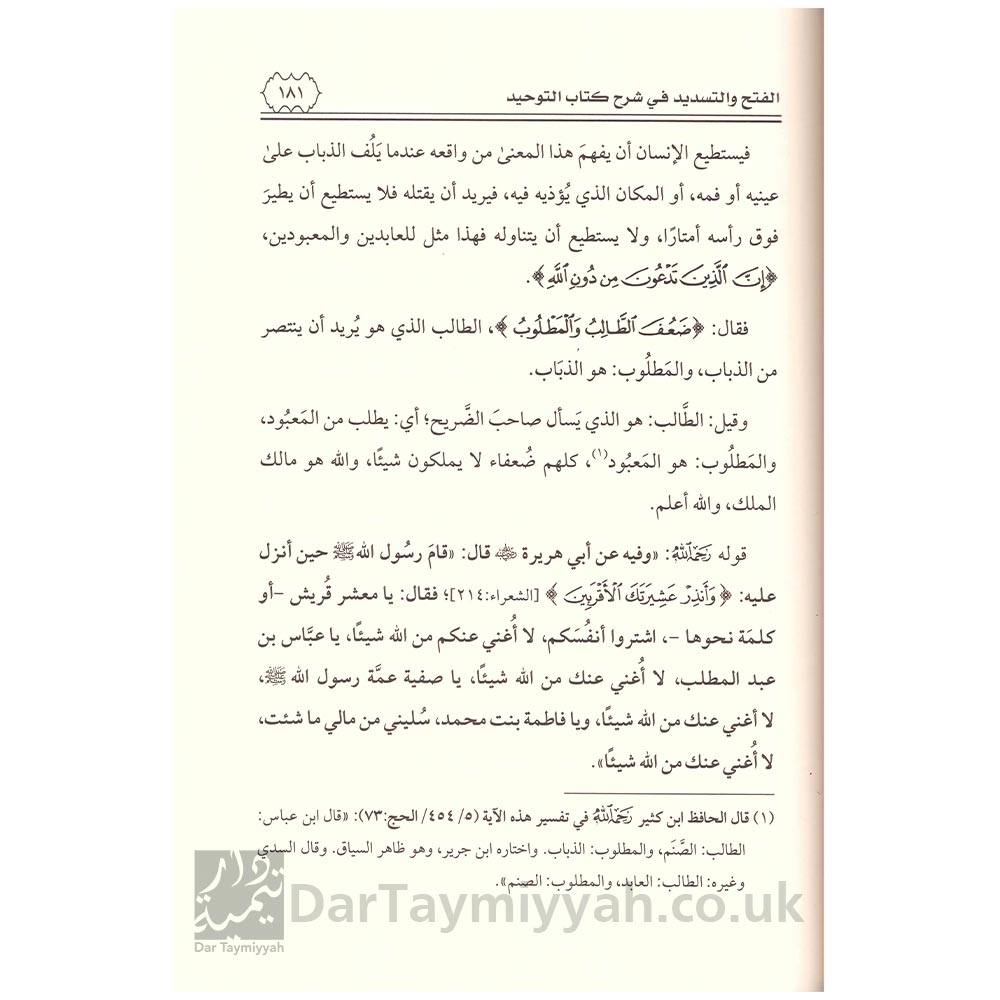 الفتح والتسديد في شرح كتاب التوحيد
١٨١
فيستطيع الإنسان أن يفهمَ هذا المعنىٰ من واقعه عندما يَلُف الذباب علىٰ
عينيه أو فمه، أو المكان الذي يُؤذيه فيه، فيريد أن يقتله فلا يستطيع أن يطيرَ
فوق رأسه أمتارًا، ولا يستطيع أن يتناوله فهذا مثل للعابدين والمعبودين،
﴿إِنَّ ٱلَّذِينَ تَدْعُونَ مِن دُونِ ٱللَّهِ﴾.
فقال: ﴿ضَعُفَ ٱلطَّالِبُ وَٱلْمَطْلُوبُ﴾، الطالب الذي هو يُريد أن ينتصر
من الذباب، والمَطلُوب: هو الذبَاب.
وقيل: الطَّالب: هو الذي يَسأل صاحبَ الضَّريح؛ أي: يطلب من المَعبُود،
والمَطلُوب: هو المَعبُود(١)، كلهم ضُعفاء لا يملكون شيئًا، والله هو مالك
الملك، والله أعلم.
قوله رَحِمَهُ ٱللَّهُ: «وفيه عن أبي هريرة رضي الله عنه قال: «قامَ رسُول الله ﷺ حين أنزل
عليه: ﴿وَأَنذِرْ عَشِيرَتَكَ ٱلْأَقْرَبِينَ﴾ [الشعراء:٢١٤]؛ فقال: يا معشر قُريش -أو
كلمَة نحوها -، اشتروا أنفُسَكم، لا أُغني عنكم من الله شيئًا، يا عبَّاس بن
عبد المطلب، لا أُغني عنك من الله شيئًا، يا صفية عمَّة رسول الله ﷺ،
لا أغني عنك من الله شيئًا، ويا فاطمة بنت محمد، سُليني من مالي ما شئت،
لا أُغني عنك من الله شيئًا».
(١) قال الحافظ ابن كثير رَحِمَهُ ٱللَّهُ في تفسير هذه الآية (٥/ ٤٥٤/ الحج:٧٣): «قال ابن عباس:
الطالب: الصَّنَم، والمطلوب: الذباب. واختاره ابن جرير، وهو ظاهر السياق. وقال السدي
وغيره: الطالب: العابد، والمطلوب: الصنم».
دار تيمية
Dar Taymiyyah
DarTaymiyyah.co.uk